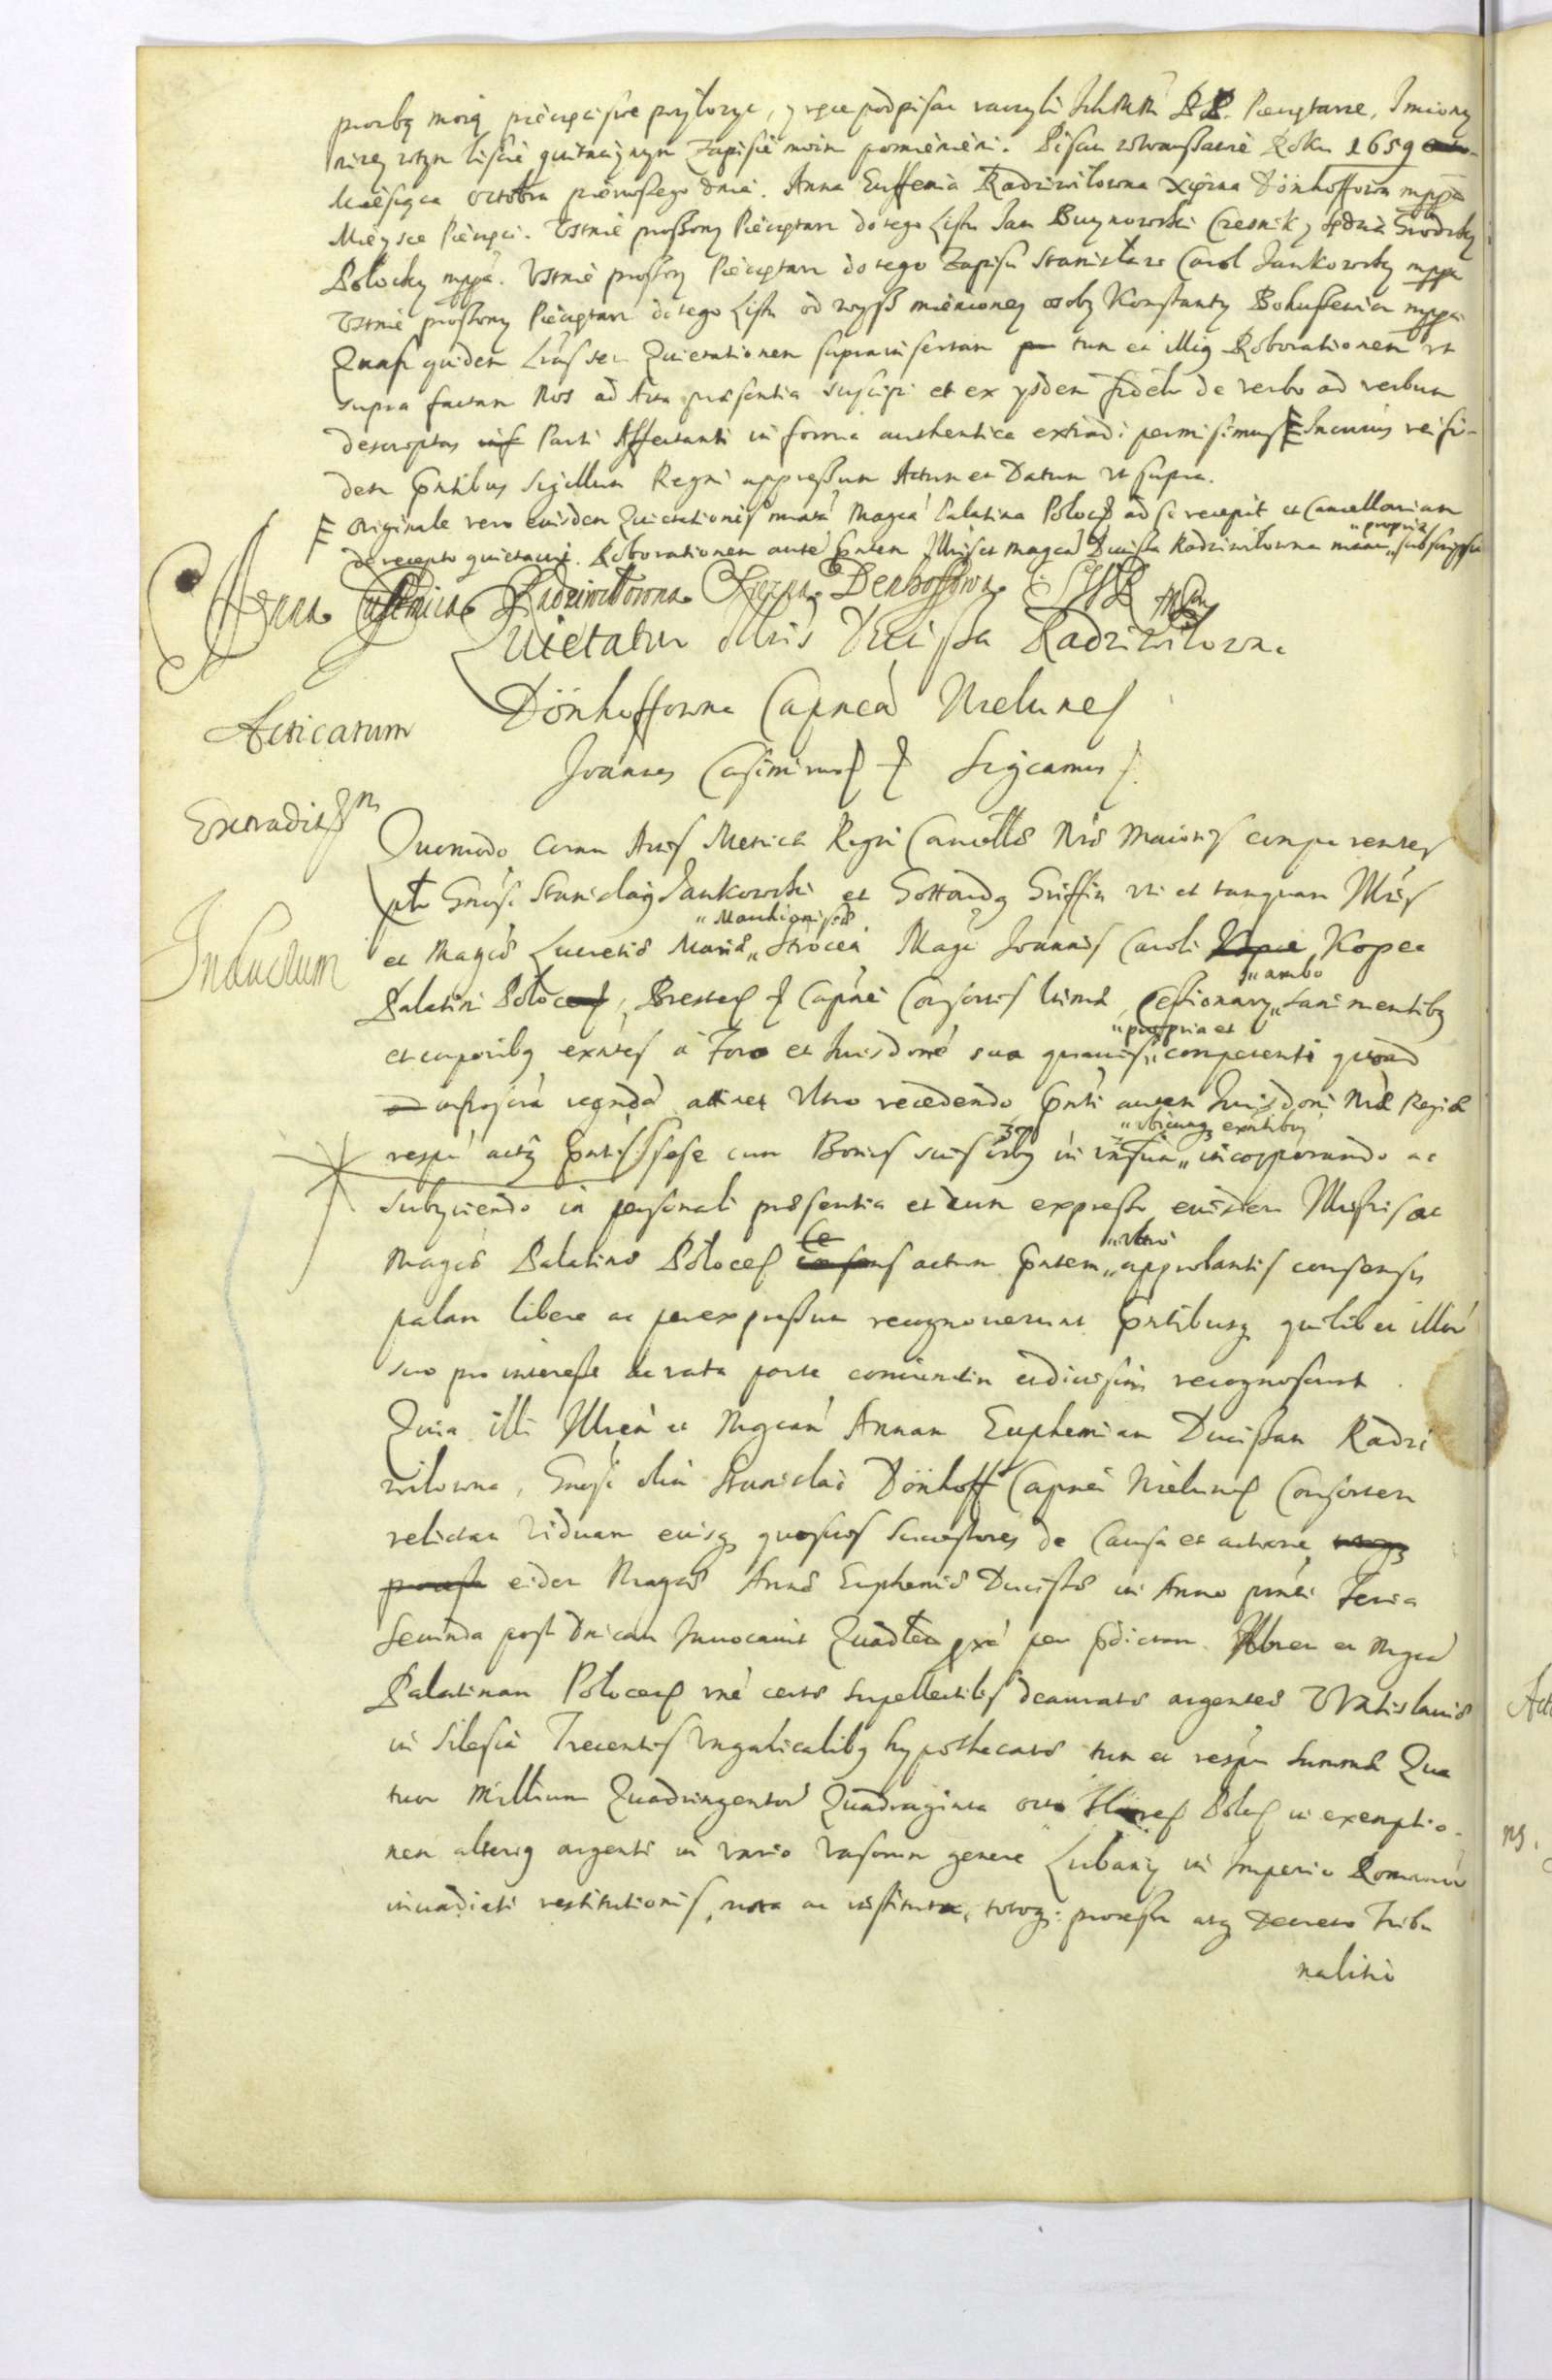 prozbą moią pieczęci swe przyłozyc, y ręce podpisac raczyli Ich MM PP. Pieczętarze, Imiony
nizey wtym liscie quitacyinym Zapisie moim pomienieni. Pisan wWarszawie Roku 1659
Miesiąca octobra pierwszego dnia. Anna Euffemia Radziwiłowna Xięzna Dönhoffowa mppa
Mieysce Pieczęci. Ustnie proszony Pieczętarz do tego Listu Jan Buynowski Czesnik y sędzia Grodzky
Połocky mppa. Ustnie proszony Pieczętarz do tego Zapisu Stanisław Carol Jankowsky mppa
Ustnie proszony Pieczętarz do tego Listu od wysz mienioney osoby Konstanty Bohuszewicz mppa
Quasquidem Lras seu Quietationem suprainsertam tum et illius Roborationem ut
supra factam Nos ad Acta præsentia suscipi et ex ysdem fideli de verbo ad verbum
descriptas Parti Affectanti in forma authentica extradi permisimus In cuius rei fi-
dem pntibus Sigillum Regni appressum Actum et Datum ut supra.
originale vero eiusdem Quietationis Magca Palatina Polocen ad se recepit et Cancellariam
de recepto quietavit. Roborationem ante pntem Illris et Magca Ducissa Radziwiłowna manu „propria„ subscripsit
Anna Eufemia Radziwiłowna Xiezna Denhoffowa
Quietatur Illris Ducissa Radziwiłowna
Dönhoffowna Capnea Wielunen
Acticatum
Joannes Casimirus Sigcamus
Extradit
Quomodo coram Actis Metrices Regni Cancellæ Nræ Maioris comparentes
pntr Gnosi Stanislaus Jankowski et Gottardus Griffin uti et tanquam Illris
Inductum
et Magcæ Lucretiæ Mariæ „Marchionissæ„ Strocea Magci Joannis Caroli Kopec
Palatini Polocen, Bresten Capnei Consortis ltimæ, Cessionary „ambo„ sani mentibus
et corporibus exntes a Foro et Jurisdone sua quavis „propria et„ competenti quoad
infrascra regnda attinet Ultro recedendo pnti autem Jurisdoni Nræ Regiæ
respu actus pntis sese cum Bonis suis orbus in „ubicunq exntibus„ incorporando ac
subyciendo in personali præsentia et cum expresso eiusdem Illustris ac
Magcæ Palatinæ Polocen actum pntem „ultro„ approbantis consensu
palam libere ac per expressum recognoverunt pntibusq quilibet illor
suo pro interesse de rata parte coniunctim et divisim recognoscunt.
Quia illi Illrem et Mgcam Annam Euphemiam Ducissam Radzi
wilowna, Gnosi olim Stanislai Dönhoff Capnei Wielunen Consortem
relictam Viduam eiusq quosvis Successores de Causa et actione
eidem Magcæ Annæ Euphemiæ Ducissæ in Anno pnti Feria
Secunda post Dnicam Invocavit Quadlem pxa per pdictam Illrem et Mgcam
Palatinam Polocen rne certæ supellectilis deauratæ argenteæ Wratislaviæ
in Silesia Trecentis Ungaricalibus hypothecatæ tum et respu summæ Qua
tuor Millium Quadringentor Quadraginta octo Floren Polon in exemptio-
nem alterius argenti in vario vasorum genere Lubany in Imperio Romano
invadiati restitutionis, mota ac instituta, totoq: processu atq Decreto Tribu
nalitio